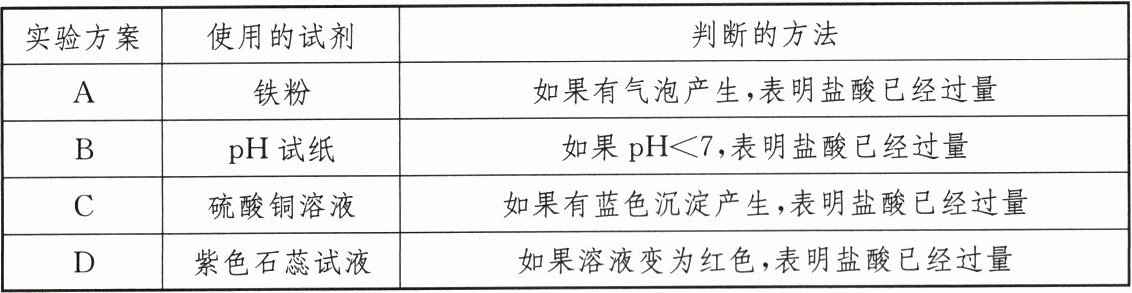 实验方案 使用的试剂 判断的方法
A 铁粉 如果有气泡产生,表明盐酸已经过量
B pH试纸 如果pH<7,表明盐酸已经过量
C 硫酸铜溶液 如果有蓝色沉淀产生,表明盐酸已经过量
D 紫色石蕊试液 如果溶液变为红色,表明盐酸已经过量